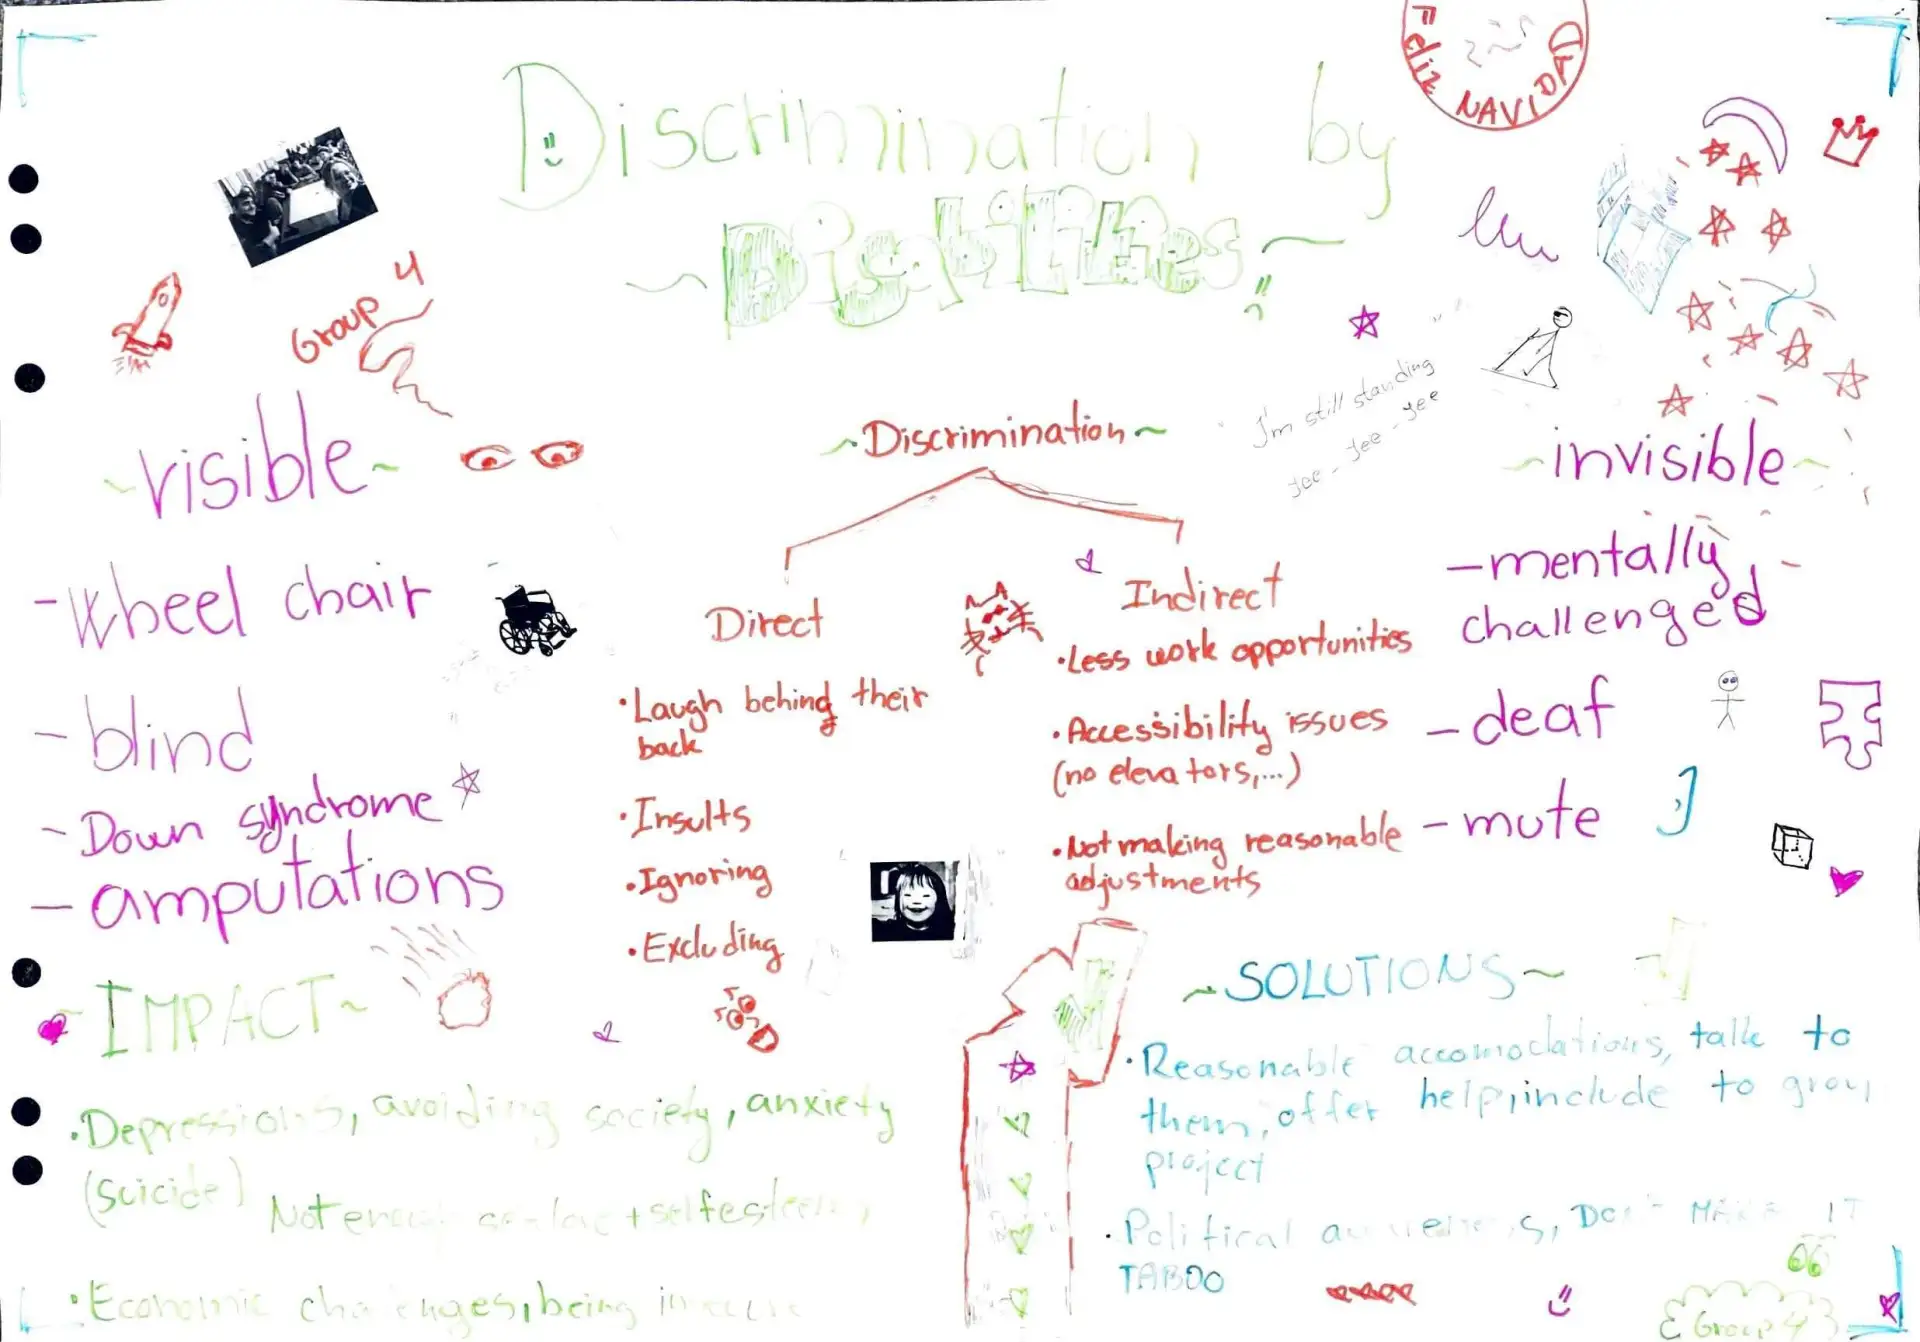 Feliz NAVIDAD
Discrimination by
~Disabilities~
Group 4
I'm still standing
yee - yee - yee
~visible~
- Wheel chair
- blind
- Down syndrome
- amputations
~Discrimination~
Direct
• Laugh behind their
back
• Insults
• Ignoring
• Excluding
Indirect
• Less work opportunities
• Accessibility issues
(no elevators,...)
• Not making reasonable
adjustments
~invisible~
- mentally
challenged
- deaf
- mute
~IMPACT~
• Depressions, avoiding society, anxiety
(suicide)
Not enough + selfesteem
• Economic challenges, being
~SOLUTIONS~
• Reasonable accomodations, talk to
them, offer help, include to group
project
• Political awareness, DON'T MAKE IT
TABOO
Group 4